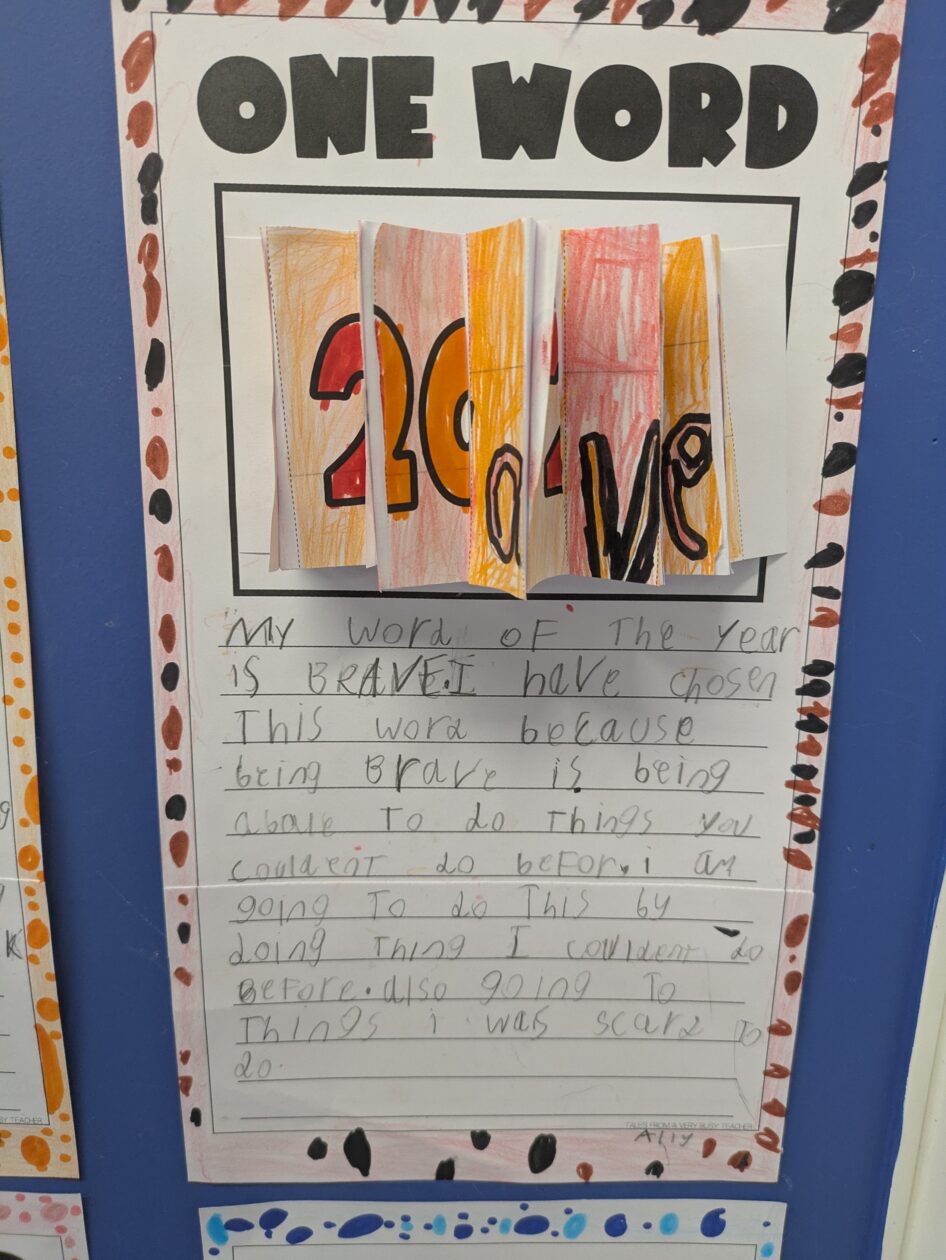 ONE WORD
20
ove
My word of The year
is BRAVE.I have chosen
This word because
being Brave is being
abale To do Things you
couldent do befor. i am
going To do This by
doing Thing I couldent do
Before. also going To
Things i was scard To
do.
TALES FROM A VERY BUSY TEACHER
Ally